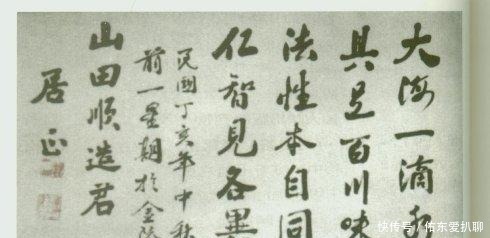 大海一滴
具足百川味
法性本自同
仁智見各異
民國丁亥年中秋
前一星期於金陵
山田順造君
居正
快传号/侑东爱扒聊